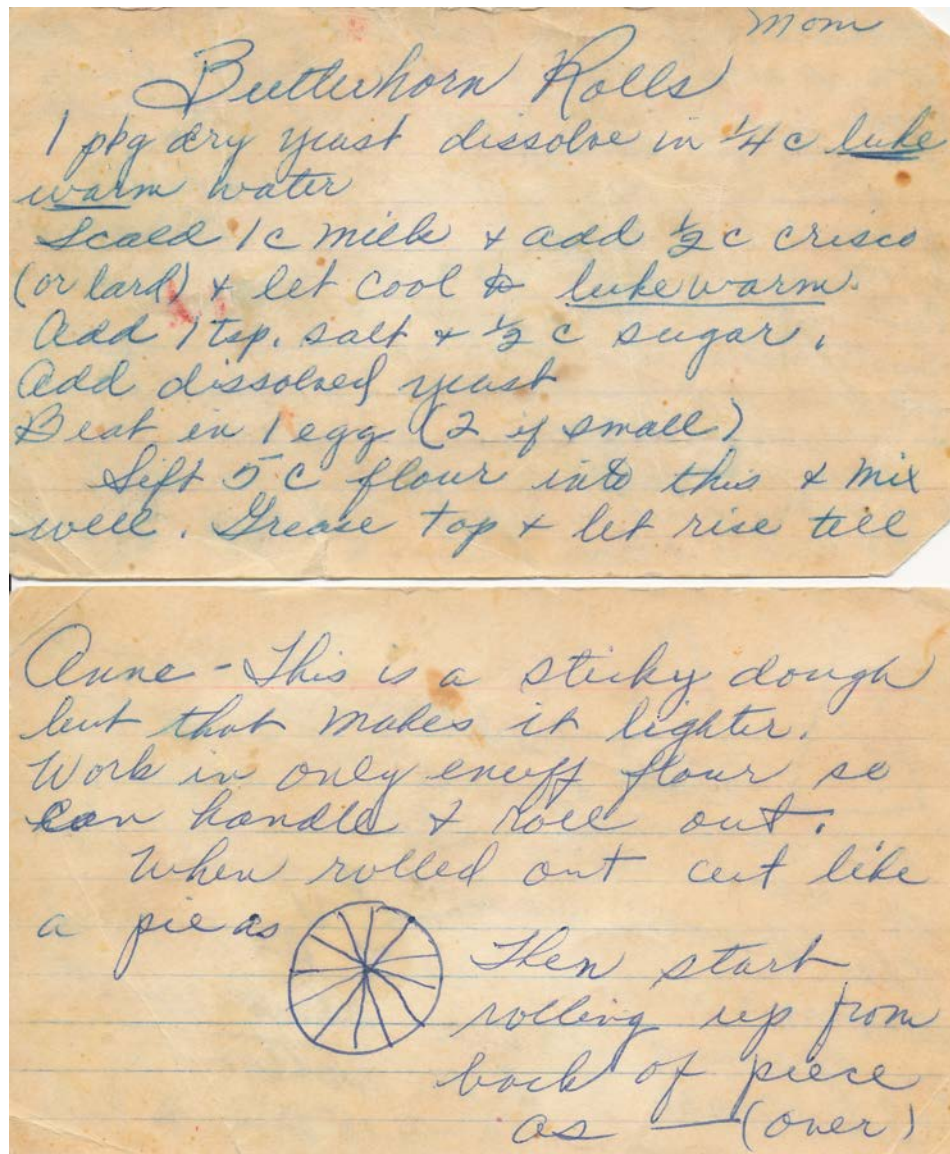 Mom
Butterhorn Rolls
1 pkg dry yeast dissolve in 1/4 c luke
warm water
Scald 1 c milk + add 1/2 c crisco
(or lard) + let cool to lukewarm.
Add 1 tsp. salt + 1/2 c sugar.
Add dissolved yeast
Beat in 1 egg (2 if small)
Sift 5 c flour into this & mix
well. Grease top + let rise till
Anne - This is a sticky dough
but that makes it lighter.
Work in only enuff flour so
can handle & roll out.
When rolled out cut like
a pie as
Then start
rolling up from
back of piece
as — (over)